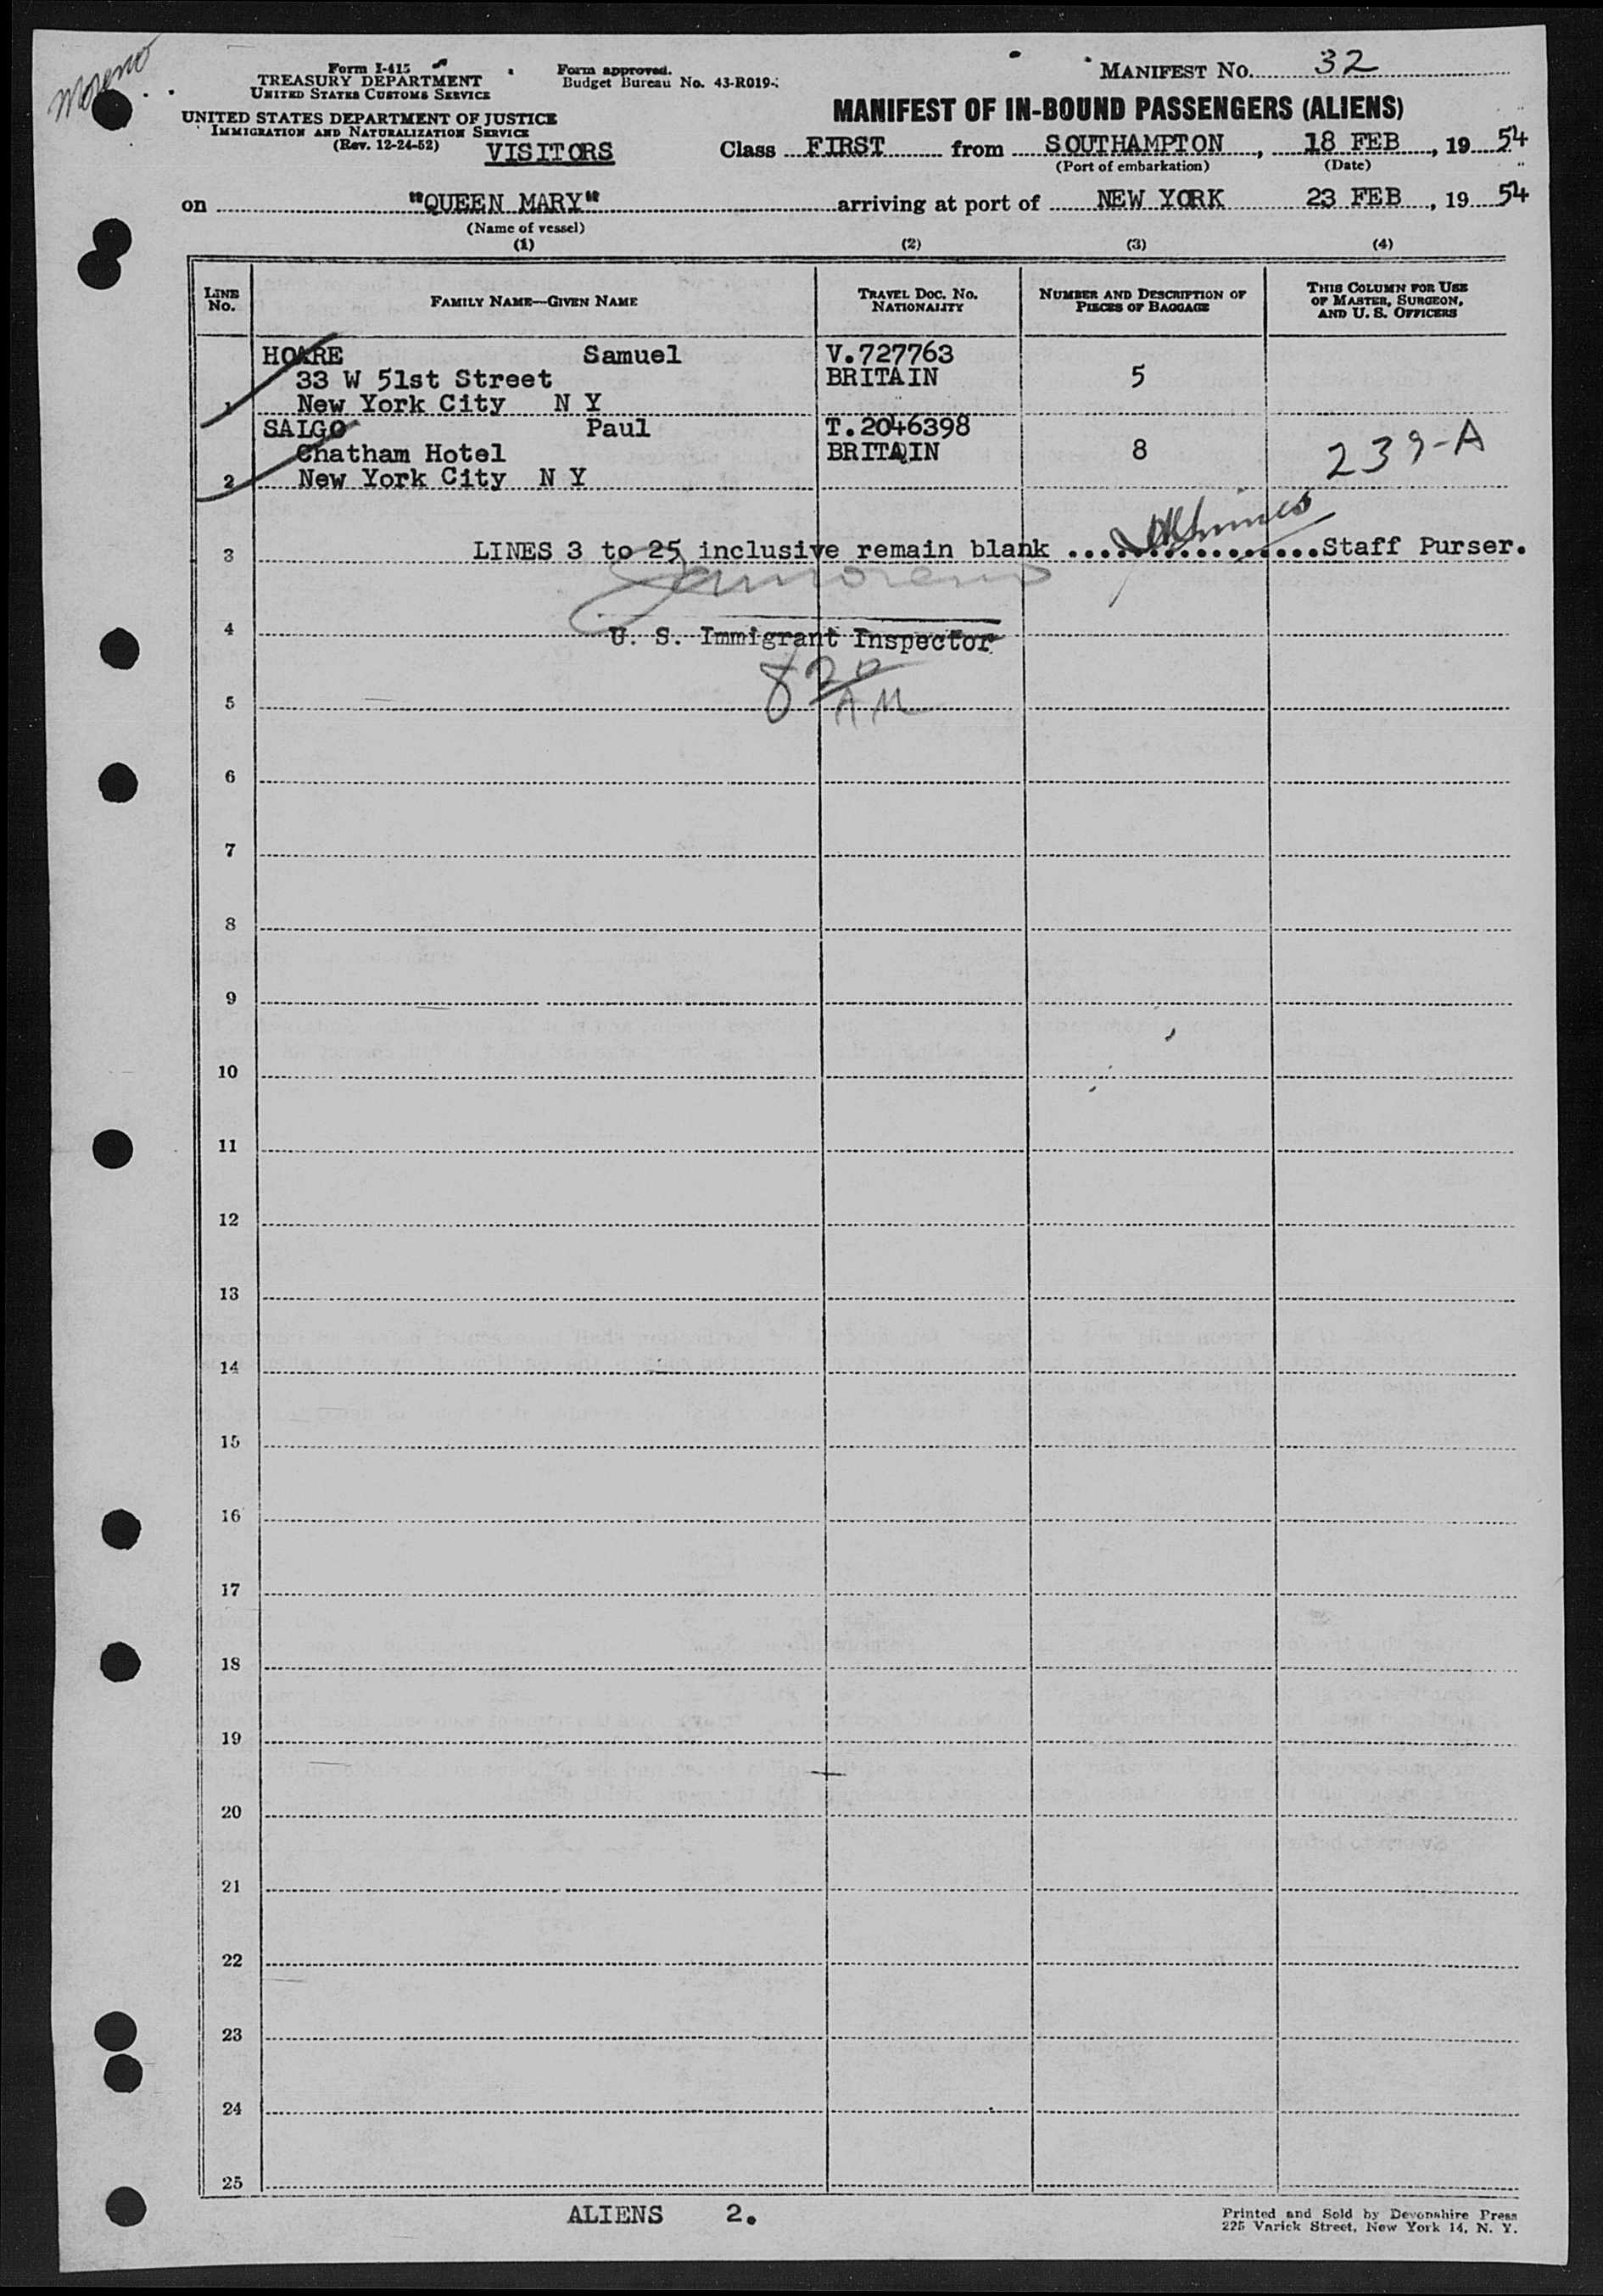 Moreno
Form I-415
TREASURY DEPARTMENT
UNITED STATES CUSTOMS SERVICE
UNITED STATES DEPARTMENT OF JUSTICE
IMMIGRATION AND NATURALIZATION SERVICE
(Rev. 12-24-52)
VISITORS
Form approved.
Budget Bureau No. 43-R019-
MANIFEST NO. 32
MANIFEST OF IN-BOUND PASSENGERS (ALIENS)
Class FIRST from SOUTHAMPTON, 18 FEB, 19 54
(Port of embarkation) (Date)
on "QUEEN MARY" arriving at port of NEW YORK 23 FEB, 19 54
(Name of vessel)
(1) (2) (3) (4)
LINE NO. FAMILY NAME—GIVEN NAME TRAVEL DOC. NO. NATIONALITY NUMBER AND DESCRIPTION OF PIECES OF BAGGAGE THIS COLUMN FOR USE OF MASTER, SURGEON, AND U. S. OFFICERS
HOARE Samuel V.727763
33 W 51st Street BRITAIN 5
1 New York City N Y
SALGO Paul T.2046398
Chatham Hotel BRITAIN 8 239-A
2 New York City N Y
3 LINES 3 to 25 inclusive remain blank ................Staff Purser.
4 U. S. Immigrant Inspector
8 20 AM
5
6
7
8
9
10
11
12
13
14
15
16
17
18
19
20
21
22
23
24
25
ALIENS 2.
Printed and Sold by Devonshire Press
225 Varick Street, New York 14, N. Y.